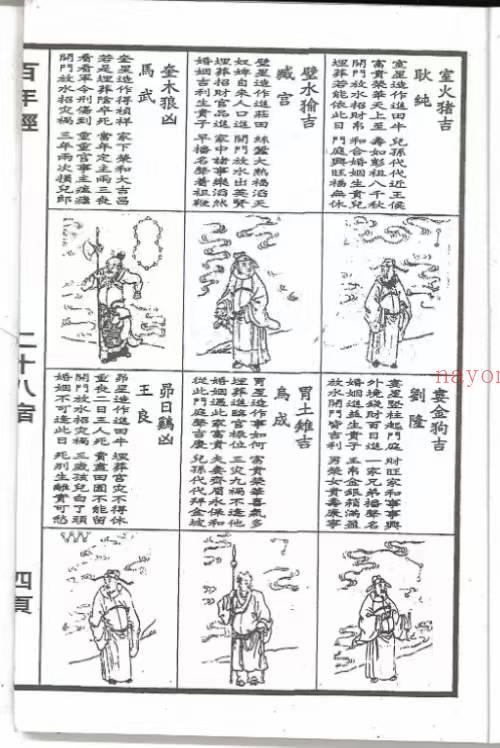 室火猪吉
耿純
室星造作進田牛 兒孫代代近王侯
富貴榮華天上至 壽如彭祖八千秋
開門放水招財帛 和合婚姻生貴兒
埋葬若能依此日 門庭興旺福無休
壁水㺄吉
臧宮
壁星造作進莊田 絲蠶大熟福滔天
奴婢自來人口進 開門放水出英賢
埋葬招財官品進 家中諸事樂滔然
婚姻吉利生貴子 早播名聲著祖鞭
奎木狼凶
馬武
奎星造作得禎祥 家下榮和大吉昌
若是埋葬陰卒死 當年定主兩三喪
看看軍令刑傷到 重重官事主瘟瘴
開門放水招災禍 三年兩次損兒郎
婁金狗吉
劉隆
婁星竪柱起門庭 財旺家和事事興
外境錢財百日進 一家兄弟播聲名
婚姻進益生貴子 玉帛金銀箱滿盈
放水開門皆吉利 男榮女貴壽康寧
胃土雉吉
烏成
胃星造作事如何 富貴榮華喜氣多
埋葬進臨官祿位 三災九禍不逢他
婚姻遇此家富貴 夫妻齊眉永保和
從此門庭聲吉慶 兒孫代代拜金坡
昴日鷄凶
王良
昴星造作進田牛 埋葬官災不得休
重喪二日三人死 賣盡田園不能留
開門放水招災禍 三歲孩兒白了頭
婚姻不可逢此日 死別生離實可愁
百年經
二十八宿
四頁
nayon